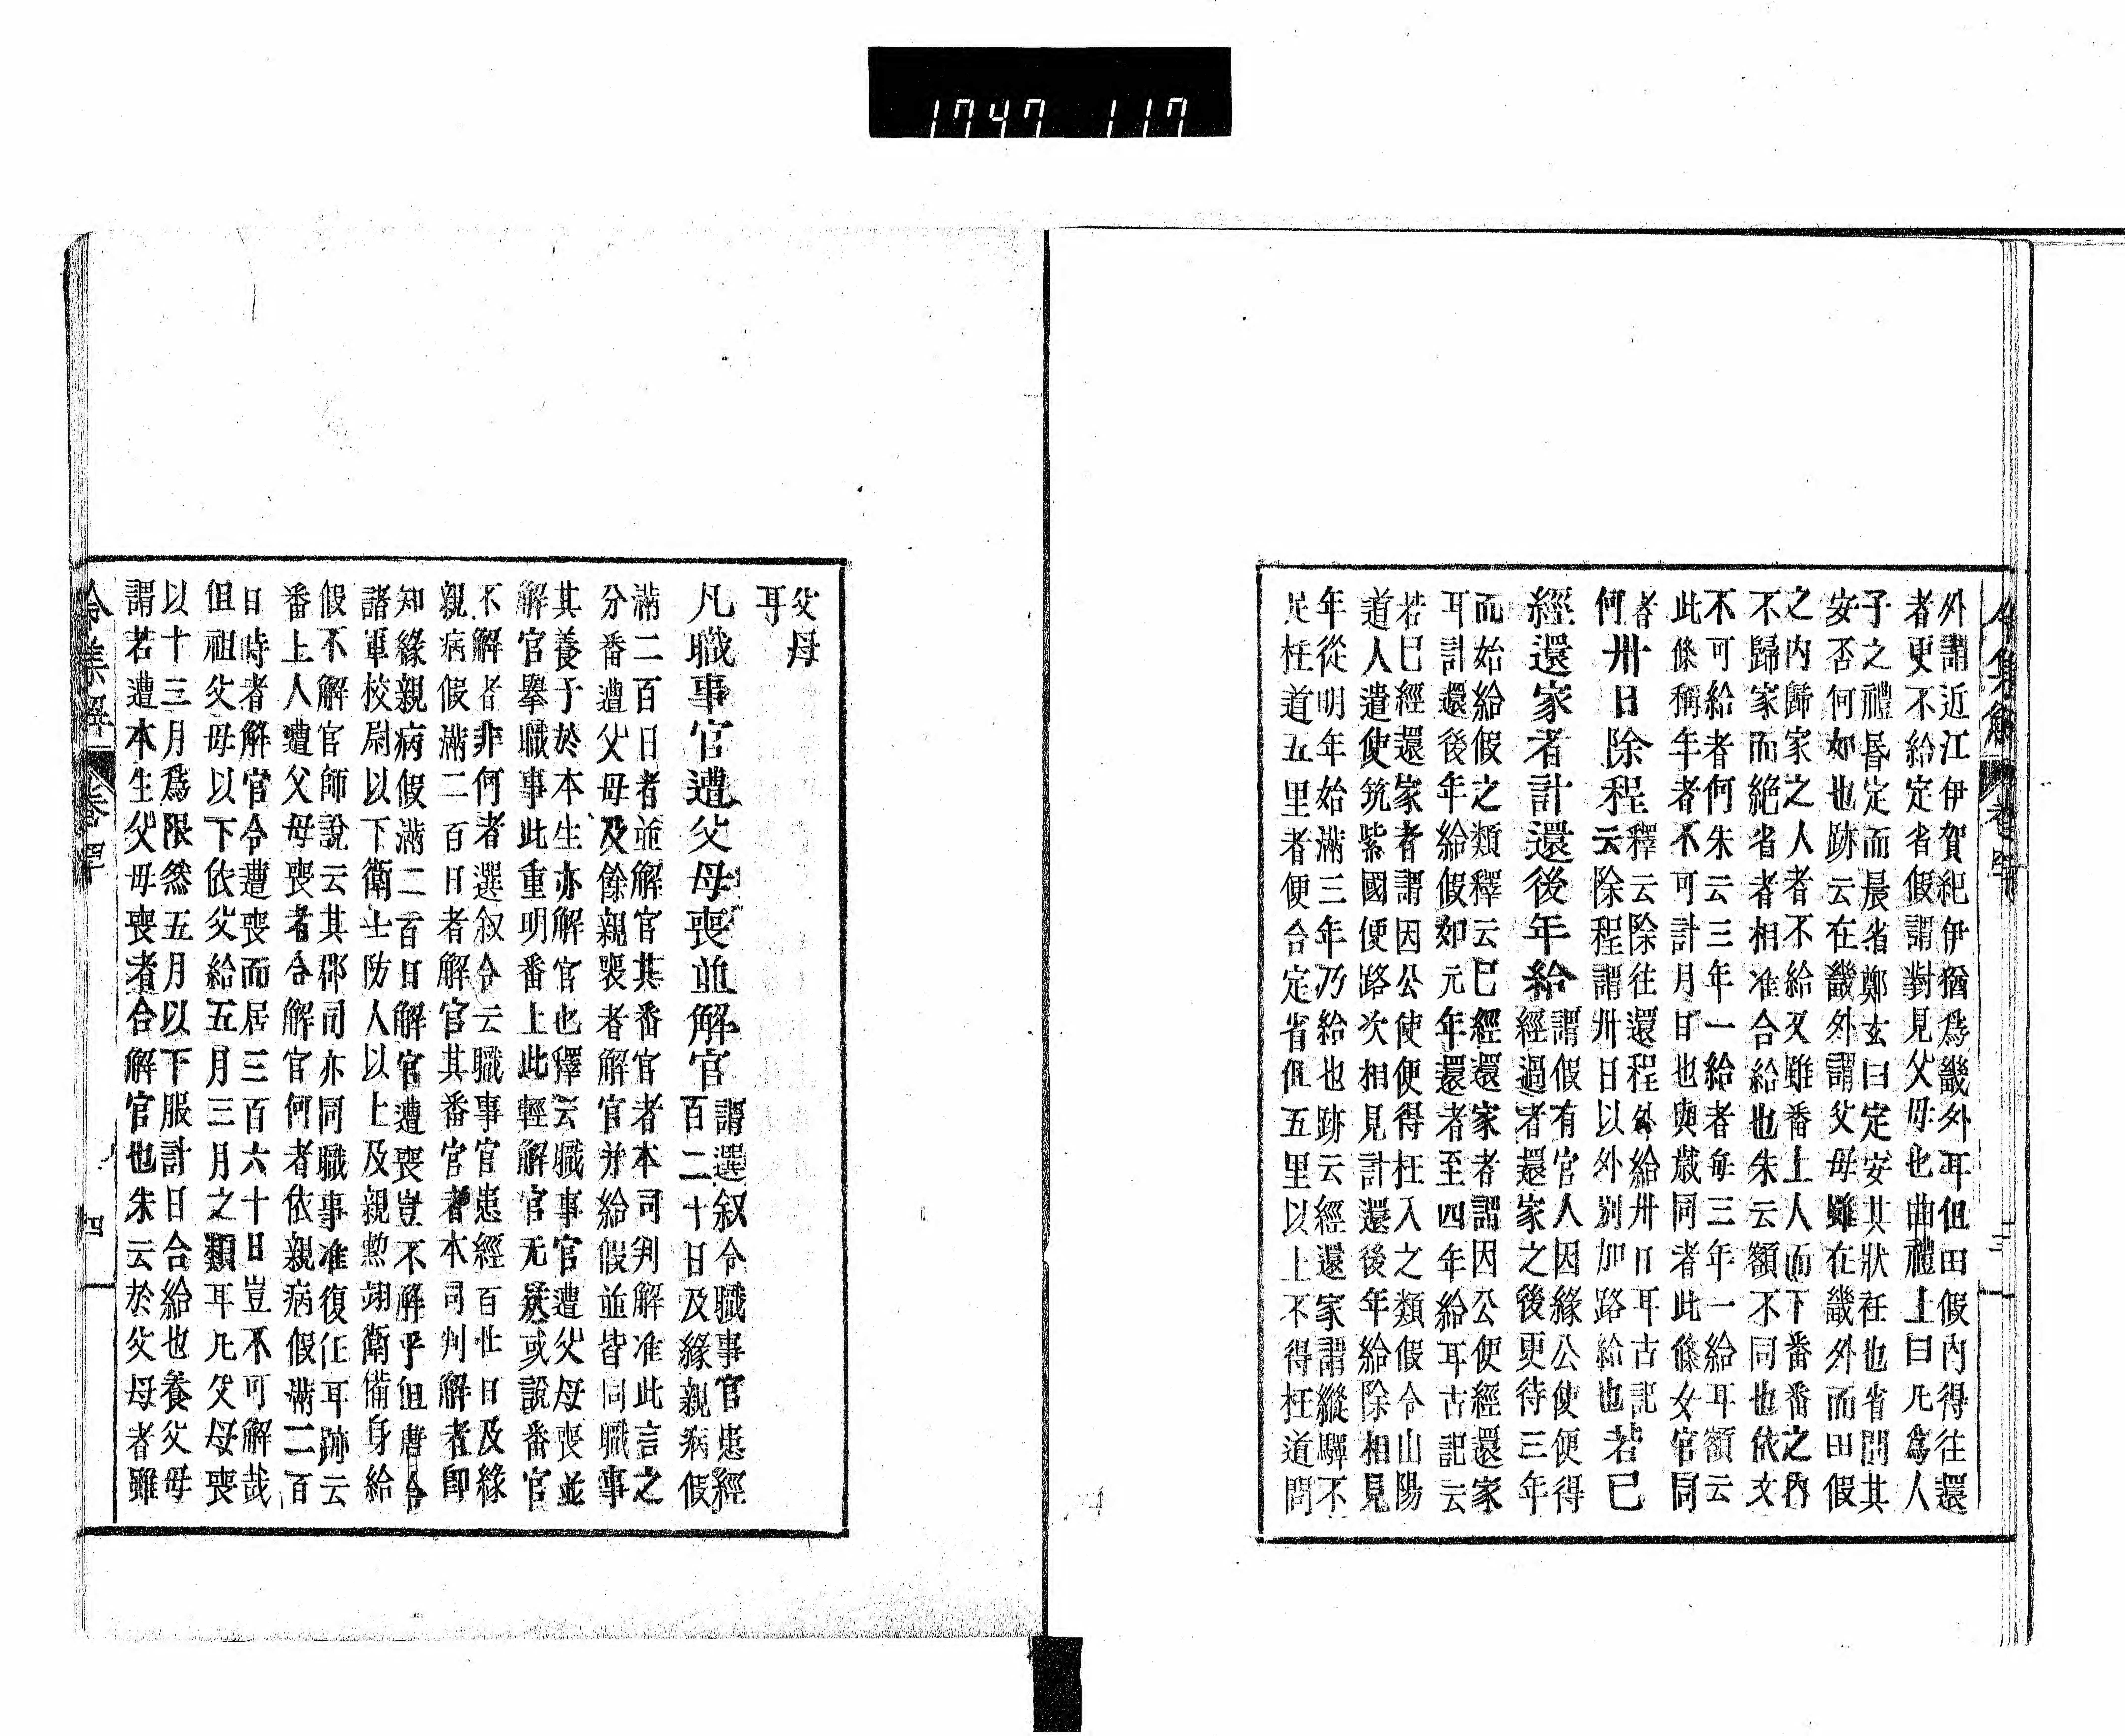 1747 117
外謂近江伊賀紀伊猶爲畿外耳但田假內得往還
者更不給定省假謂對見父母也曲禮上曰凡爲人
子之禮昏定而晨省鄭玄曰定安其狀衽也省問其
安否何如也跡云在畿外謂父母雖在畿外而田假
之內歸家之人者不給又雖番上人而下番之內
不歸家而絶省者相准合給也朱云額不同也依文
不可給者何朱云三年一給者每三年一給耳額云
此條稱年者不可計月日也與歲同者此條女官同
者
何
卅日除程
釋云除往還程外給卅日耳古記
云除程謂卅日以外別加路給也
若已
經還家者計還後年給
謂假有官人因緣公使便得
經過者還家之後更待三年
而始給假之類釋云已經還家者謂因公使經還家
耳計還後年給假如元年還者至四年給耳古記云
若已經還家者謂因公使便得枉入之類假令山陽
道人遣使筑紫國使路次相見計還後年給除相見
年從明年始滿三年乃給也跡云經還家謂縱驛不
足枉道五里者便合定省但五里以上不得枉道問
令集解 卷四十 三
父母
耳
凡職事官遭父母喪並解官
謂選叙令職事官患經
百二十日及緣親病假
滿二百日者並解官其番官者本司判解准此言之
分番遭父母及餘親喪者解官并給假並皆同職事
其養子於本生亦解官也釋云職事官遭父母喪並
解官擧職事此重明番上此輕解官无疑或說番官
不解者非何者選叙令云職事官患經百廿日及緣
親病假滿二百日者解官其番官者本司判解者卽
知緣親病假滿二百日解官遭喪豈不解乎但唐令
諸軍校尉以下衛士防人以上及親勲翊衛備身給
假不解官師說云其郡司亦同職事准復任耳跡云
番上人遭父母喪者合解官何者依親病假滿二百
日時者解官令遭喪而居三百六十日豈不可解哉
但祖父母以下依父給五月三月之類耳凡父母喪
以十三月爲限然五月以下服計日合給也養父母
謂若遭本生父母喪者合解官也朱云於父母者雖
令集解 卷四十 四